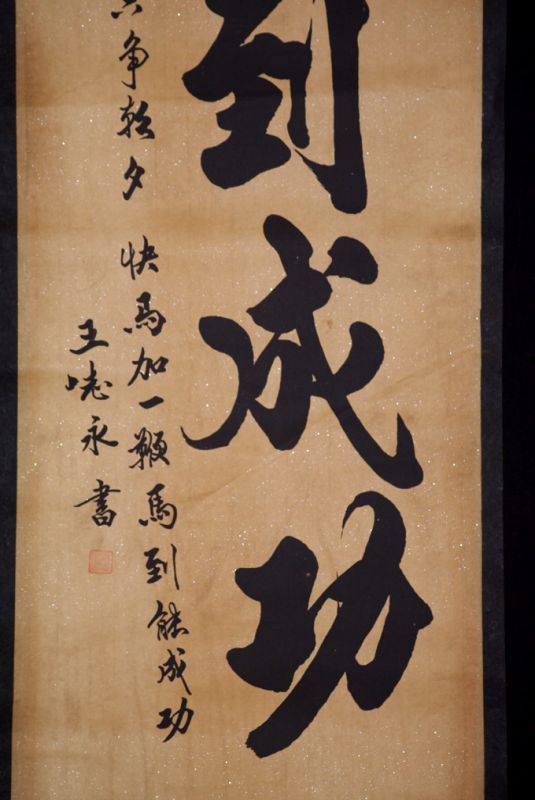 到成功
争朝夕 快馬加一鞭 馬到能成功
王永書